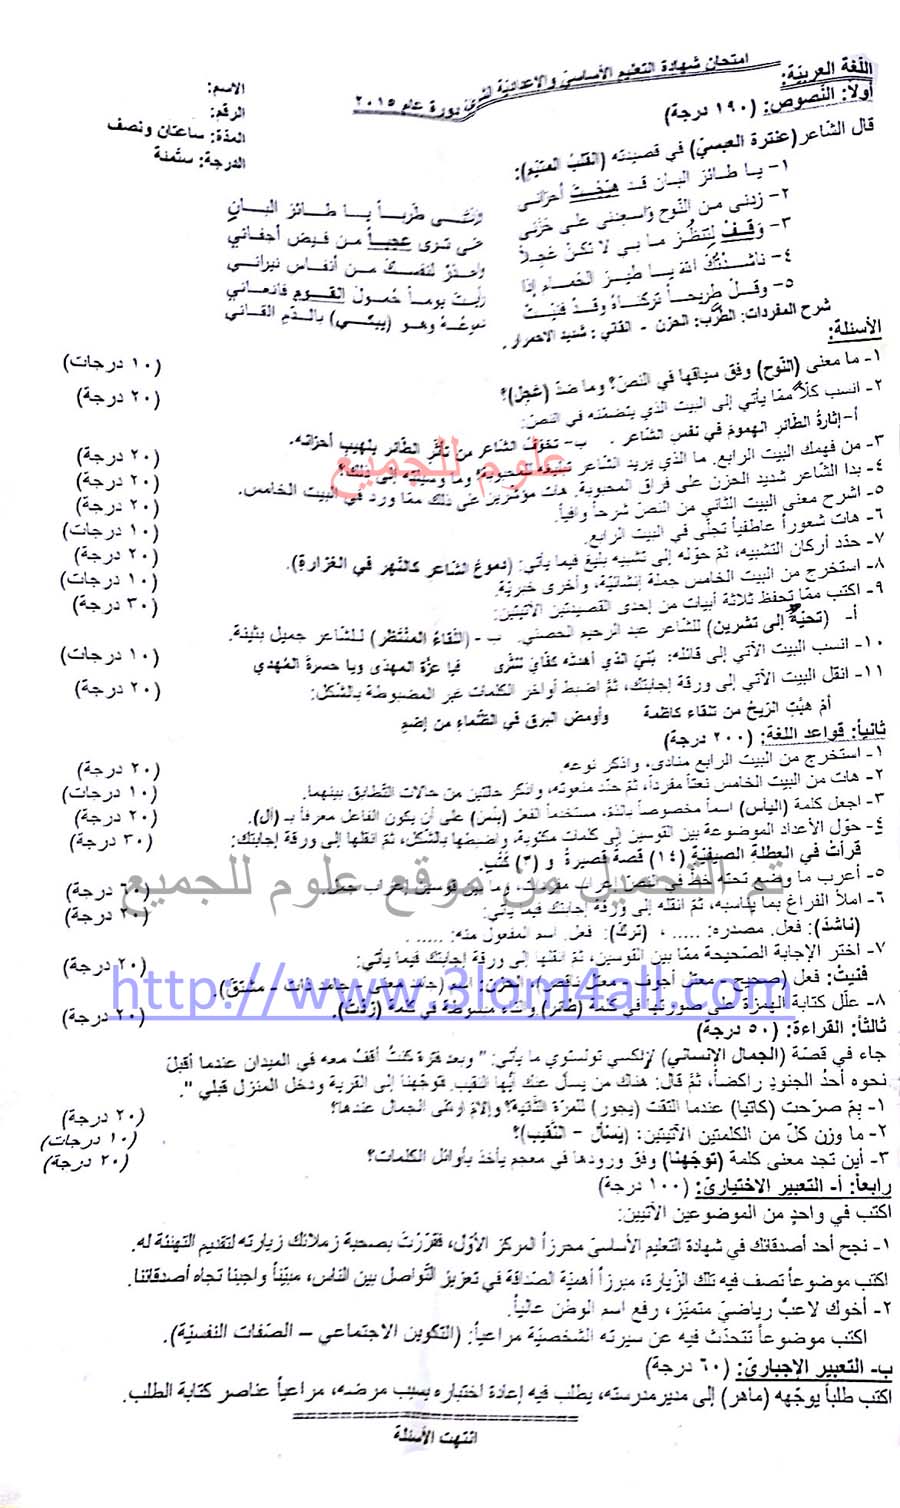 امتحان شهادة التعليم الأساسي والإعدادية الشرعية دورة عام ٢٠١٥
اللغة العربية:
الاسم:
أولاً: النصوص: (١٩٠ درجة)
الرقم:
المدة: ساعتان ونصف
الدرجة: ستمئة
قال الشاعر (عنترة العبسي) في قصيدته (القلب المتيم):
١- يا طائر البان قد هيّجت أحزاني وزدتني طرباً يا طائر البان
٢- زدني من النّوح واسعدني على حزني حتى ترى عجباً من فيض أجفاني
٣- وقف لتنظر ما بي لا تكن عجلاً واحذر لنفسك من أنفاس نيراني
٤- ناشدتك الله يا طير الحمام إذا رأيت يوماً حمول القوم فانعاني
٥- وقل طريحاً تركناه وقد فنيت دموعه وهو (يبكي) بالدم القاني
شرح المفردات: الطرب: الحزن - القاني: شديد الاحمرار.
الأسئلة:
١- ما معنى (النّوح) وفق سياقها في النص؟ وما ضد (عجل)؟ (١٠ درجات)
٢- انسب كلاً ممّا يأتي إلى البيت الذي يتضمنه في النص: (٢٠ درجة)
أ- إثارة الطائر الهموم في نفس الشاعر. ب- تخوّف الشاعر من تأثّر الطائر بلهيب أحزانه.
٣- من فهمك البيت الرابع. ما الذي يريد الشاعر تبليغه للمحبوبة؟ وما وسيلته إلى ذلك؟ (٢٠ درجة)
٤- بدا الشاعر شديد الحزن على فراق المحبوبة. هات مؤشرين على ذلك ممّا ورد في البيت الخامس. (٢٠ درجة)
٥- اشرح معنى البيت الثاني من النص شرحاً وافياً. (٢٠ درجة)
٦- هات شعوراً عاطفياً تجلّى في البيت الرابع. (١٠ درجات)
٧- حدّد أركان التشبيه، ثمّ حوّله إلى تشبيه بليغ فيما يأتي: (دموعُ الشاعر كالنهر في الغزارة). (٢٠ درجة)
٨- استخرج من البيت الخامس جملة إنشائيّة، وأخرى خبريّة. (١٠ درجات)
٩- اكتب ممّا تحفظ ثلاثة أبيات من إحدى القصيدتين الآتيتين: (٣٠ درجة)
أ- (تحيّة إلى تشرين) للشاعر عبد الرحيم الحصني. ب- (اللقاء المنتظر) للشاعر جميل بثينة.
١٠- انسب البيت الآتي إلى قائله: بُنَيّ الذي أهدته كفّاي للثرى فيا عزّة المهدى ويا حسرة المهدي (١٠ درجات)
١١- انقل البيت الآتي إلى ورقة إجابتك، ثمّ اضبط أواخر الكلمات غير المضبوطة بالشّكل: (٢٠ درجة)
أم هبّت الريح من تلقاء كاظمة وأومض البرق في الظّلماء من إضم
ثانياً: قواعد اللغة: (٢٠٠ درجة)
١- استخرج من البيت الرابع منادى، واذكر نوعه. (٢٠ درجة)
٢- هات من البيت الخامس نعتاً مفرداً، ثمّ حدّد منعوته، واذكر حالتين من حالات التّطابق بينهما. (١٠ درجات)
٣- اجعل كلمة (اليأس) اسماً مخصوصاً بالذم، مستخدماً الفعل (بئس) على أن يكون الفاعل معرفاً بـ (ال). (٢٠ درجة)
٤- حوّل الأعداد الموضوعة بين القوسين إلى كلمات مكتوبة، واضبطها بالشّكل، ثمّ انقلها إلى ورقة إجابتك: (٣٠ درجة)
قرأت في العطلة الصيفيّة (١٤) قصةً قصيرةً و (٣) كتبٍ.
٥- أعرب ما وضع تحته خطّ في النص إعراب مفردات، وما بين قوسين إعراب جمل. (٦٠ درجة)
٦- املأ الفراغ بما يناسبه، ثم انقله إلى ورقة إجابتك فيما يأتي: (٢٠ درجة)
(ناشد): فعل. مصدره: ..... ، (ترك): فعل. اسم المفعول منه: ..... .
٧- اختر الإجابة الصّحيحة ممّا بين القوسين، ثمّ انقلها إلى ورقة إجابتك فيما يأتي: (٢٠ درجة)
فنيت: فعل (صحيح - معتل أجوف - معتل ناقص)، الحزن: اسم (جامد معنى - جامد ذات - مشتق).
٨- علّل كتابة الهمزة على صورتها في كلمة (طائر) والتاء مبسوطة في كلمة (زدت). (٢٠ درجة)
ثالثاً: القراءة: (٥٠ درجة)
جاء في قصّة (الجمال الإنساني) لإلكسي تولستوي ما يأتي: " وبعد فترة كنت أقف معه في الميدان عندما أقبل
نحوه أحدُ الجنودِ راكضاً، ثمّ قال: هناك من يسأل عنك أيّها النقيب. فتوجّهنا إلى القرية ودخل المنزل قبلي ".
١- بمَ صرّحت (كاتيا) عندما التقت (يجور) للمرة الثانية؟ وإلامَ ارتقى الجمال عندها؟ (٢٠ درجة)
٢- ما وزن كلّ من الكلمتين الآتيتين: (يسأل - النّقيب)؟ (١٠ درجات)
٣- أين تجد معنى كلمة (توجّهنا) وفق ورودها في معجم يأخذ بأوائل الكلمات؟ (٢٠ درجة)
رابعاً: أ- التعبير الاختياريّ: (١٠٠ درجة)
اكتب في واحدٍ من الموضوعين الآتيين:
١- نجح أحد أصدقائك في شهادة التعليم الأساسيّ محرزاً المركز الأوّل، فقرّرت بصحبة زملائك زيارته لتقديم التهنئة له.
اكتب موضوعاً تصف فيه تلك الزّيارة، مبرزاً أهميّة الصّداقة في تعزيز التّواصل بين الناس، مبيّناً واجبنا تجاه أصدقائنا.
٢- أخوك لاعبٌ رياضيّ متميّز، رفع اسم الوطن عالياً.
اكتب موضوعاً تتحدّث فيه عن سيرته الشخصيّة مراعياً: (التكوين الاجتماعي – الصّفات النفسيّة).
ب- التعبير الإجباريّ: (٦٠ درجة)
اكتب طلباً يوجّهه (ماهر) إلى مدير مدرسته، يطلب فيه إعادة اختباره بسبب مرضه، مراعياً عناصر كتابة الطلب.
انتهت الأسئلة
علوم للجميع
تم التحميل من موقع علوم للجميع
http://www.3lom4all.com